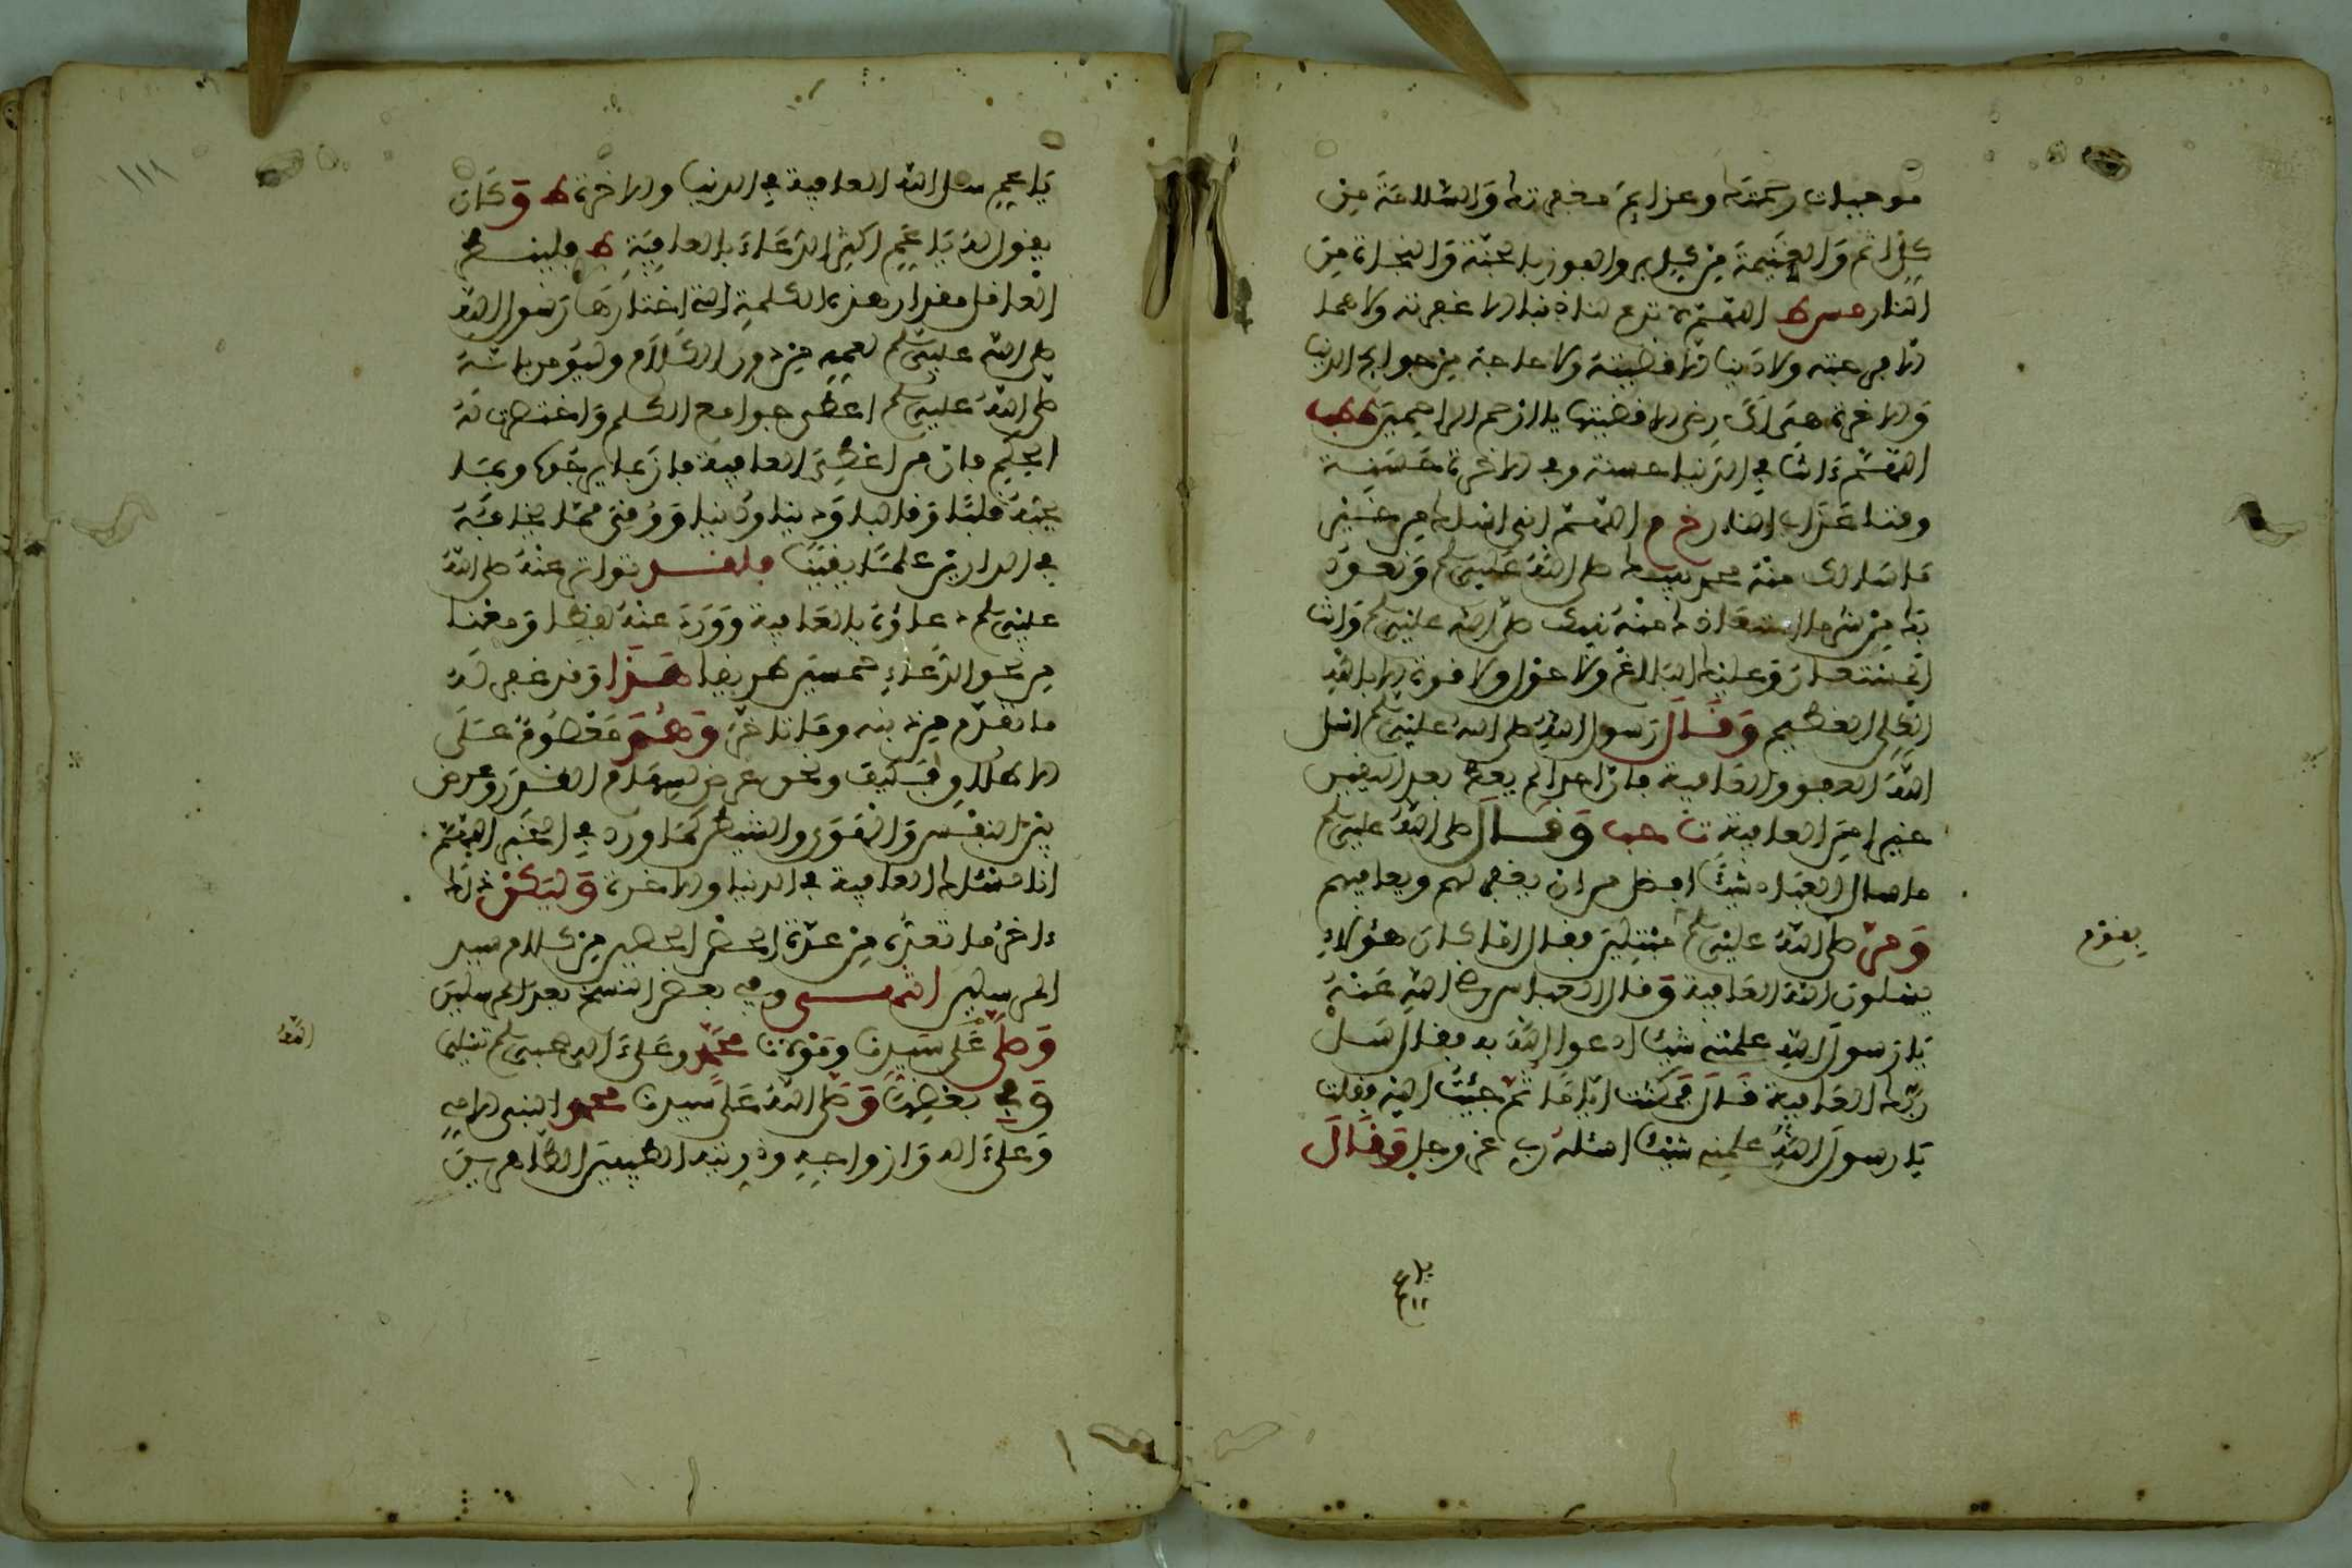 موجبات رحمتك وعزائم مغفرتك والسلامة من
كل اثم والغنيمة من كل بر والفوز بالجنة والنجاة من
النار مس ط اللهم لا تدع لنا ذنبا الا غفرته ولا هما
الا فرجته ولا دينا الا قضيته ولا حاجة من حوائج الدنيا
والاخرة هي لك رضى الا قضيتها يا ارحم الراحمين ط طب
اللهم ءاتنا في الدنيا حسنة وفي الاخرة حسنة
وقنا عذاب النار خ م اللهم اني اسئلك من خير
ما سالك منه محمد نبيك صلى الله عليه وسلم ونعوذ
بك من شر ما استعاذك منه نبيك صلى الله عليه وسلم وانت
المستعان وعليك البلاغ ولا حول ولا قوة الا بالله
العلي العظيم وقال رسول الله صلى الله عليه وسلم اسئل
الله العفو والعافية فان احدا لم يعط بعد اليقين
خيرا من العافية ت حب وقال صلى الله عليه وسلم
ما سال العباد شيئا افضل من ان يغفر لهم ويعافيهم
ومر صلى الله عليه وسلم مبتلين فقال اما كان هؤلاء
بقوم
يسئلون الله العافية وقال العباس رضي الله عنه
يا رسول الله علمني شيئا ادعو الله به فقال سل
ربك العافية قال فمكثت اياما ثم جئت اليه فقلت
يا رسول الله علمني شيئا اسئله ربي عز وجل وقال
يا عم
يا عم سل الله العافية في الدنيا والاخرة ط وكان
يقول له يا عم اكثر الدعاء بالعافية ط فلينظر
العاقل مقدار هذه الكلمة التي اختارها رسول الله
صلى الله عليه وسلم لعمه من دون الكلام وليؤمن بانه
صلى الله عليه وسلم اعطي جوامع الكلم واختصرت له
الحكم فان من اعطي العافية فاز بما يرجوه ويحبه
قلبا وقالبا ودينا ودنيا ووقي مما يخافه
في الدارين علما يقينا فلقد تواتر عنه صلى الله
عليه وسلم دعاؤه بالعافية وورد عنه لفظا ومعنى
من نحو الدعاء خمسين طريقا هذا وقد غفر له
ما تقدم من ذنبه وما تاخر وهو معصوم على
الاطلاق فكيف ونحن غرض لسهام القدر وغرض
بين النفس والهوى والشيطن كما ورد في الخبر اللهم
انا نسئلك العافية في الدنيا والاخرة وليكن ذلك
ءاخر ما تعده من عدة الحصن الحصين من كلام سيد
المرسلين انتهى وفي بعض النسخ بعد المرسلين
وصلى على سيدنا ومولانا محمد وعلى ءاله وصحبه وسلم تسليما
الله
وفي بعضها وصلى الله على سيدنا محمد النبي الامي
وعلى ءاله وازواجه وذريته الطيبين الطاهرين
١١١